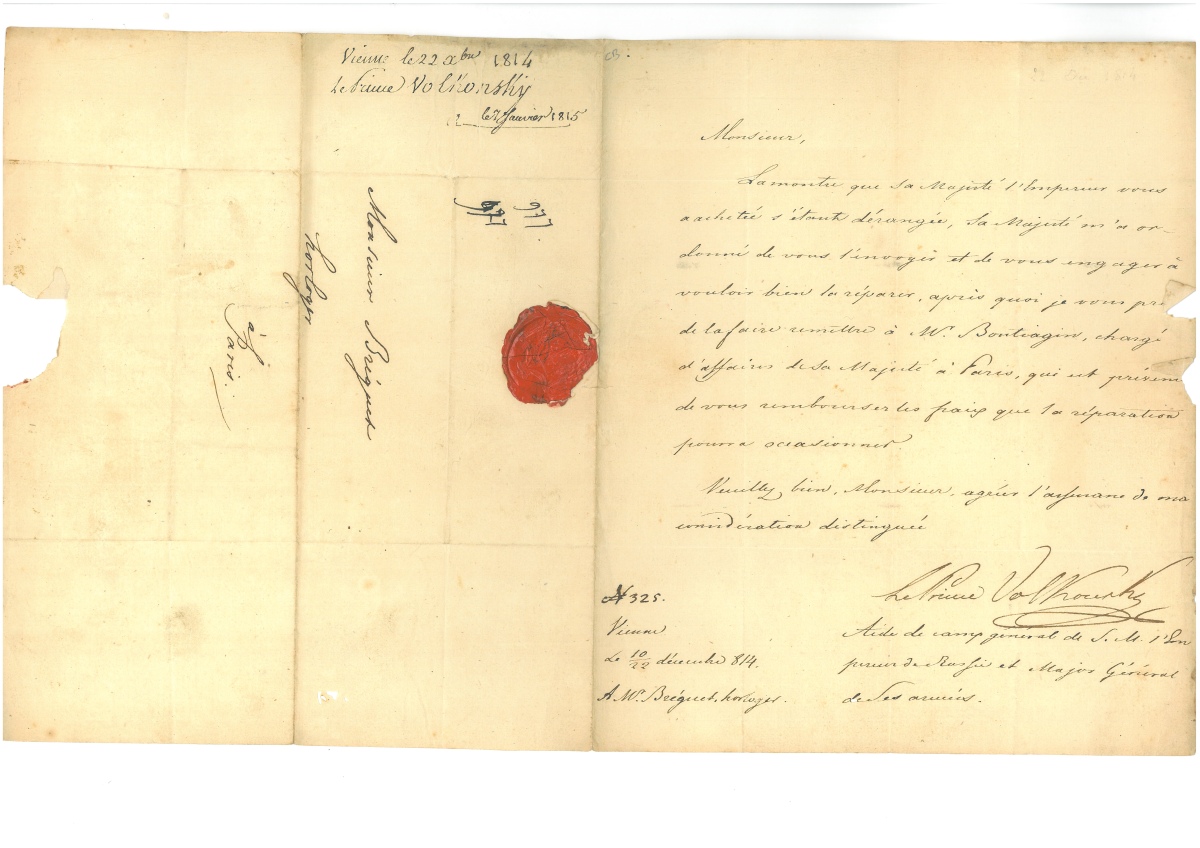 Vienne le 22 Xbre 1814
Le Prince Volkonsky
le 7 Janvier 1815
977
Monsieur Bréguet
horloger
à Paris.
Monsieur,
La montre que Sa Majesté l'Empereur vous
a achetée s'étant dérangée, Sa Majesté m'a or-
donné de vous l'envoyer et de vous engager à
vouloir bien la réparer, après quoi je vous prie
de la faire remettre à Mr. Boutiagin, chargé
d'affaires de Sa Majesté à Paris, qui est préven
de vous rembourser les fraix que la réparation
pourra occasionner
Veuillez bien, Monsieur, agréer l'assurance de ma
considération distinguée
Le Prince Volkonsky
Aide de camp général de S. M. l'Em
pereur de Russie et Major Général
de Ses armées.
N 325.
Vienne
Le 10/22 décembre 814.
A Mr. Bréguet, horloger.